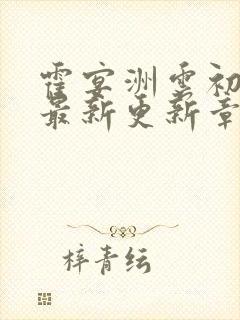 霍宴洲云初
最新更新章
梓青纭